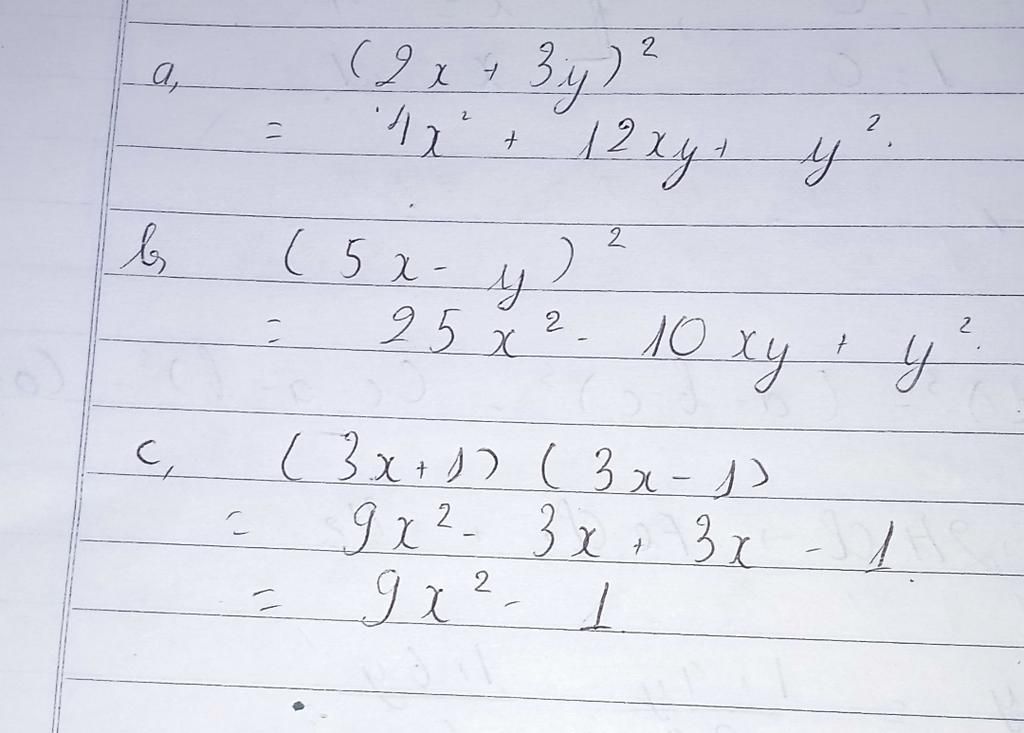 a, (2x + 3y)²
= 4x² + 12xy + y².
b, (5x - y)²
= 25x² - 10xy + y².
c, (3x+1) (3x-1)
= 9x² - 3x + 3x - 1
= 9x² - 1